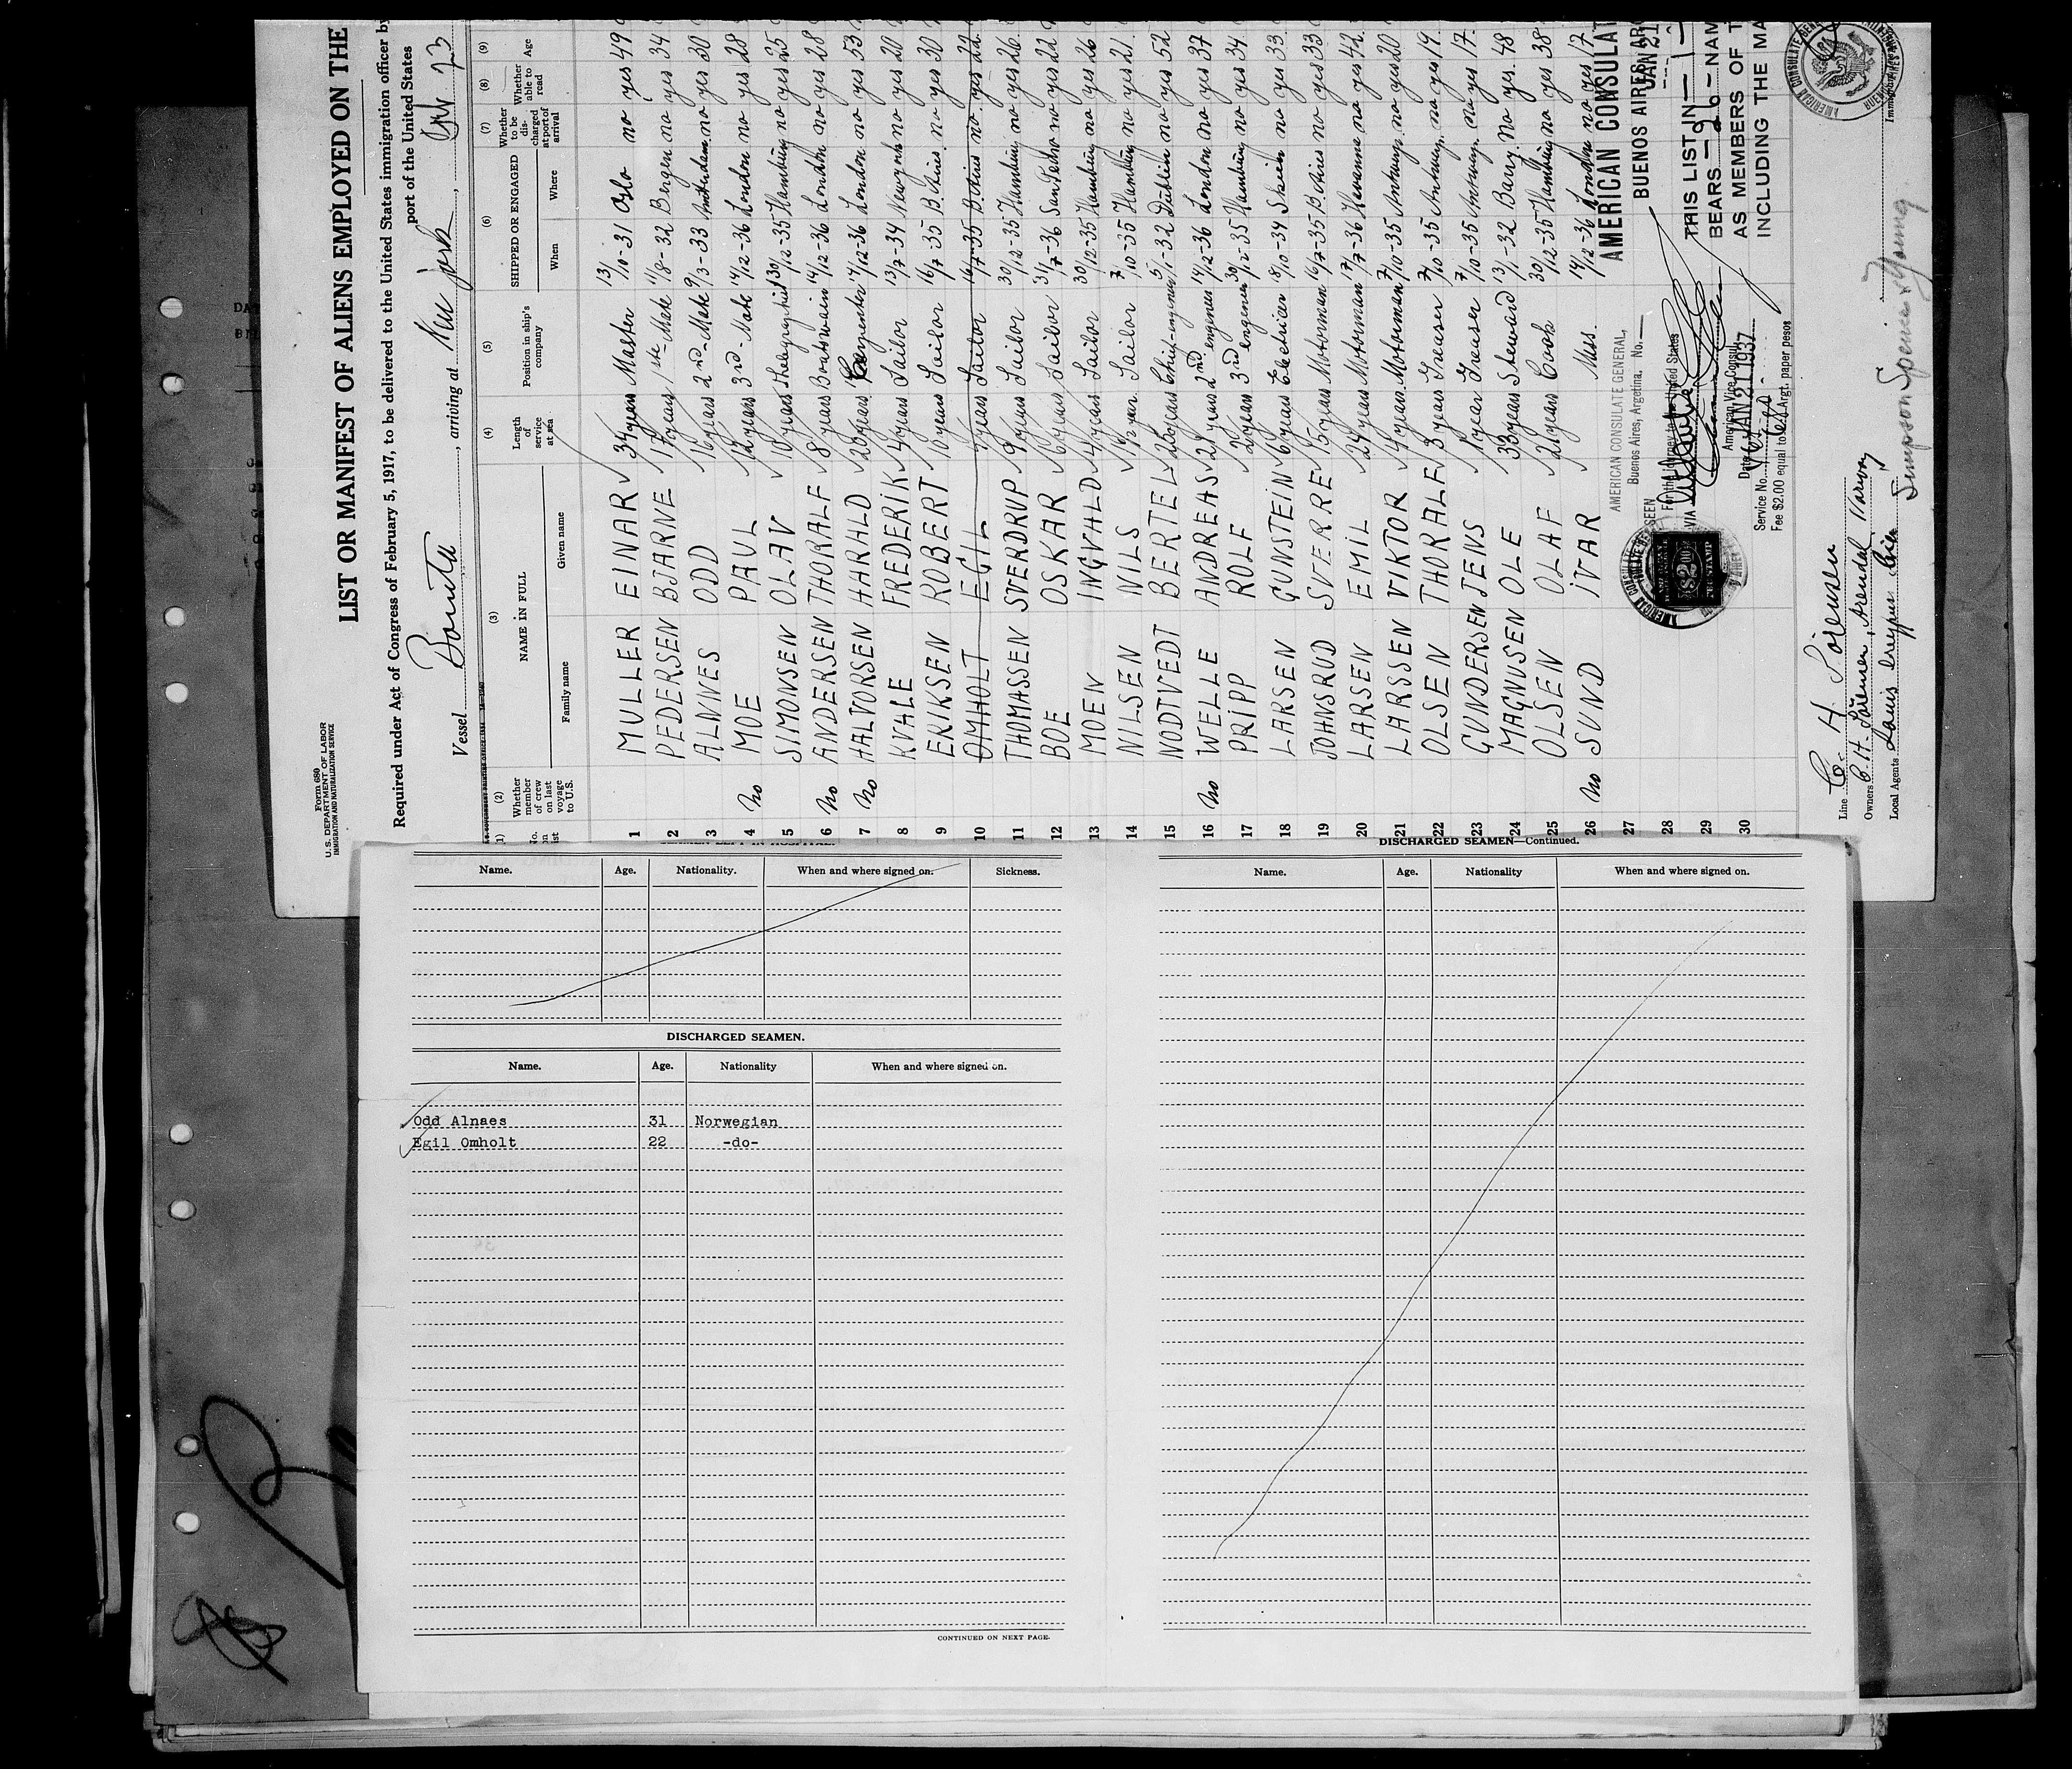 Form 680
U. S. DEPARTMENT OF LABOR
IMMIGRATION AND NATURALIZATION SERVICE
LIST OR MANIFEST OF ALIENS EMPLOYED ON THE
Required under Act of Congress of February 5, 1917, to be delivered to the United States immigration officer by
port of the United States
Vessel Bonita, arriving at New york, 23
(1) (2) (3) (4) (5) (6) (7) (8) (9)
Whether member of crew on last voyage to U.S.
NAME IN FULL
Family name Given name
Length of service at sea
Position in ship's company
SHIPPED OR ENGAGED
When Where
Whether to be discharged at port of arrival
Whether able to read
Age
1 MULLER EINAR 34 years Master 13/10-31 Oslo no yes 49
2 PEDERSEN BJARNE 17 years 1ste-Mate 11/8-32 Bergen no yes 34
3 ALNNES ODD 16 years 2nd-Mate 9/3-33 Amsterdam no yes 30
4 no MOE PAUL 12 years 3rd-Mate 14/12-36 London no yes 28
5 SIMONSEN OLAV 10 years 30/12-35 Hamburg no yes 25
6 no ANDERSEN THORALF 8 years Boatswain 14/12-36 London no yes 28
7 no HALVORSEN HARALD 23 years Carpenter 14/12-36 London no yes 53
8 KVALE FREDERIK 4 years Sailor 13/7-34 Newyork no yes 20
9 ERIKSEN ROBERT 10 years Sailor 16/7-35 B. Aires no yes 30
10 OMHOLT EGIL years Sailor 16/7-35 B. Aires no yes 22
11 THOMASSEN SVERDRUP 9 years Sailor 30/12-35 Hamburg no yes 26
12 BOE OSKAR 6 years Sailor 31/7-36 San Pedro no yes 22
13 MOEN INGVALD 4 years Sailor 30/12-35 Hamburg no yes 26
14 NILSEN NILS Sailor 7/10-35 Hamburg no yes 21
15 NODTVEDT BERTEL 25 years Chief-engineer 5/1-32 Dublin no yes 52
16 no WELLE ANDREAS 21 years 2nd engineer 14/12-36 London no yes 37
17 PRIPP ROLF years 3rd engineer 30/12-35 Hamburg no yes 34
18 LARSEN GUNSTEIN 6 years Electricer 18/10-34 Skien no yes 33
19 JOHNSRUD SVERRE 15 years Motorman 16/7-35 B. Aires no yes 33
20 LARSEN EMIL 24 years Motorman 17/7-36 Havanna no yes 42
21 LARSSEN VIKTOR 4 years Motorman 7/10-35 Antwerp no yes 20
22 OLSEN THORALF 3 years Greaser 7/10-35 Antwerp no yes 19
23 GUNDERSEN JENS 1 year Greaser 7/10-35 Antwerp no yes 17
24 MAGNUSEN OLE 33 years Steward 13/1-32 Bary no yes 48
25 OLSEN OLAF 21 years Cook 30/12-35 Hamburg no yes 38
26 no SUND IVAR Mess. 14/12-36 London no yes 17
27
28
29
30
AMERICAN CONSULATE GENERAL,
Buenos Aires, Argentina, No.
SEEN
For the journey to the United States
VIA
American Vice Consul
Date JAN 21 1937
Service No.
Fee $2.00 equal to Argt. paper pesos
AMERICAN CONSULAT
BUENOS AIRES, AR
JAN 21
THIS LIST IN
BEARS - 26 - NAM
AS MEMBERS OF T
INCLUDING THE MA
Line C. H. Sörensen
Owners C. H. Sörensen, Arendal, Norway
Local Agents
Simpson Spence Young
Name. Age. Nationality. When and where signed on. Sickness.
DISCHARGED SEAMEN.
Name. Age. Nationality When and where signed on.
Odd Alnaes 31 Norwegian
Egil Omholt 22 -do-
CONTINUED ON NEXT PAGE.
DISCHARGED SEAMEN—Continued.
Name. Age. Nationality When and where signed on.